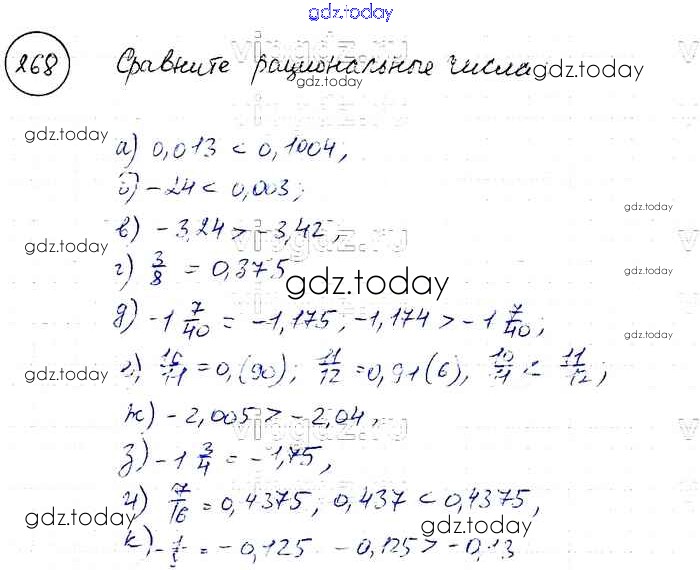 gdz.today
268 Сравните рациональные числа
а) 0,013 < 0,1004,
б) -24 < 0,003;
в) -3,24 > -3,42,
г) 3/8 = 0,375
д) -1 7/40 = -1,175, -1,174 > -1 7/40;
е) 10/11 = 0,(90); 11/12 = 0,91(6), 10/11 < 11/12;
ж) -2,005 > -2,04,
з) -1 3/4 = -1,75,
и) 7/16 = 0,4375; 0,437 < 0,4375,
к) -1/8 = -0,125 -0,125 > -0,13
gdz.today
gdz.today
gdz.today
gdz.today
gdz.today
gdz.today
gdz.today
gdz.today
gdz.today
gdz.today
gdz.today